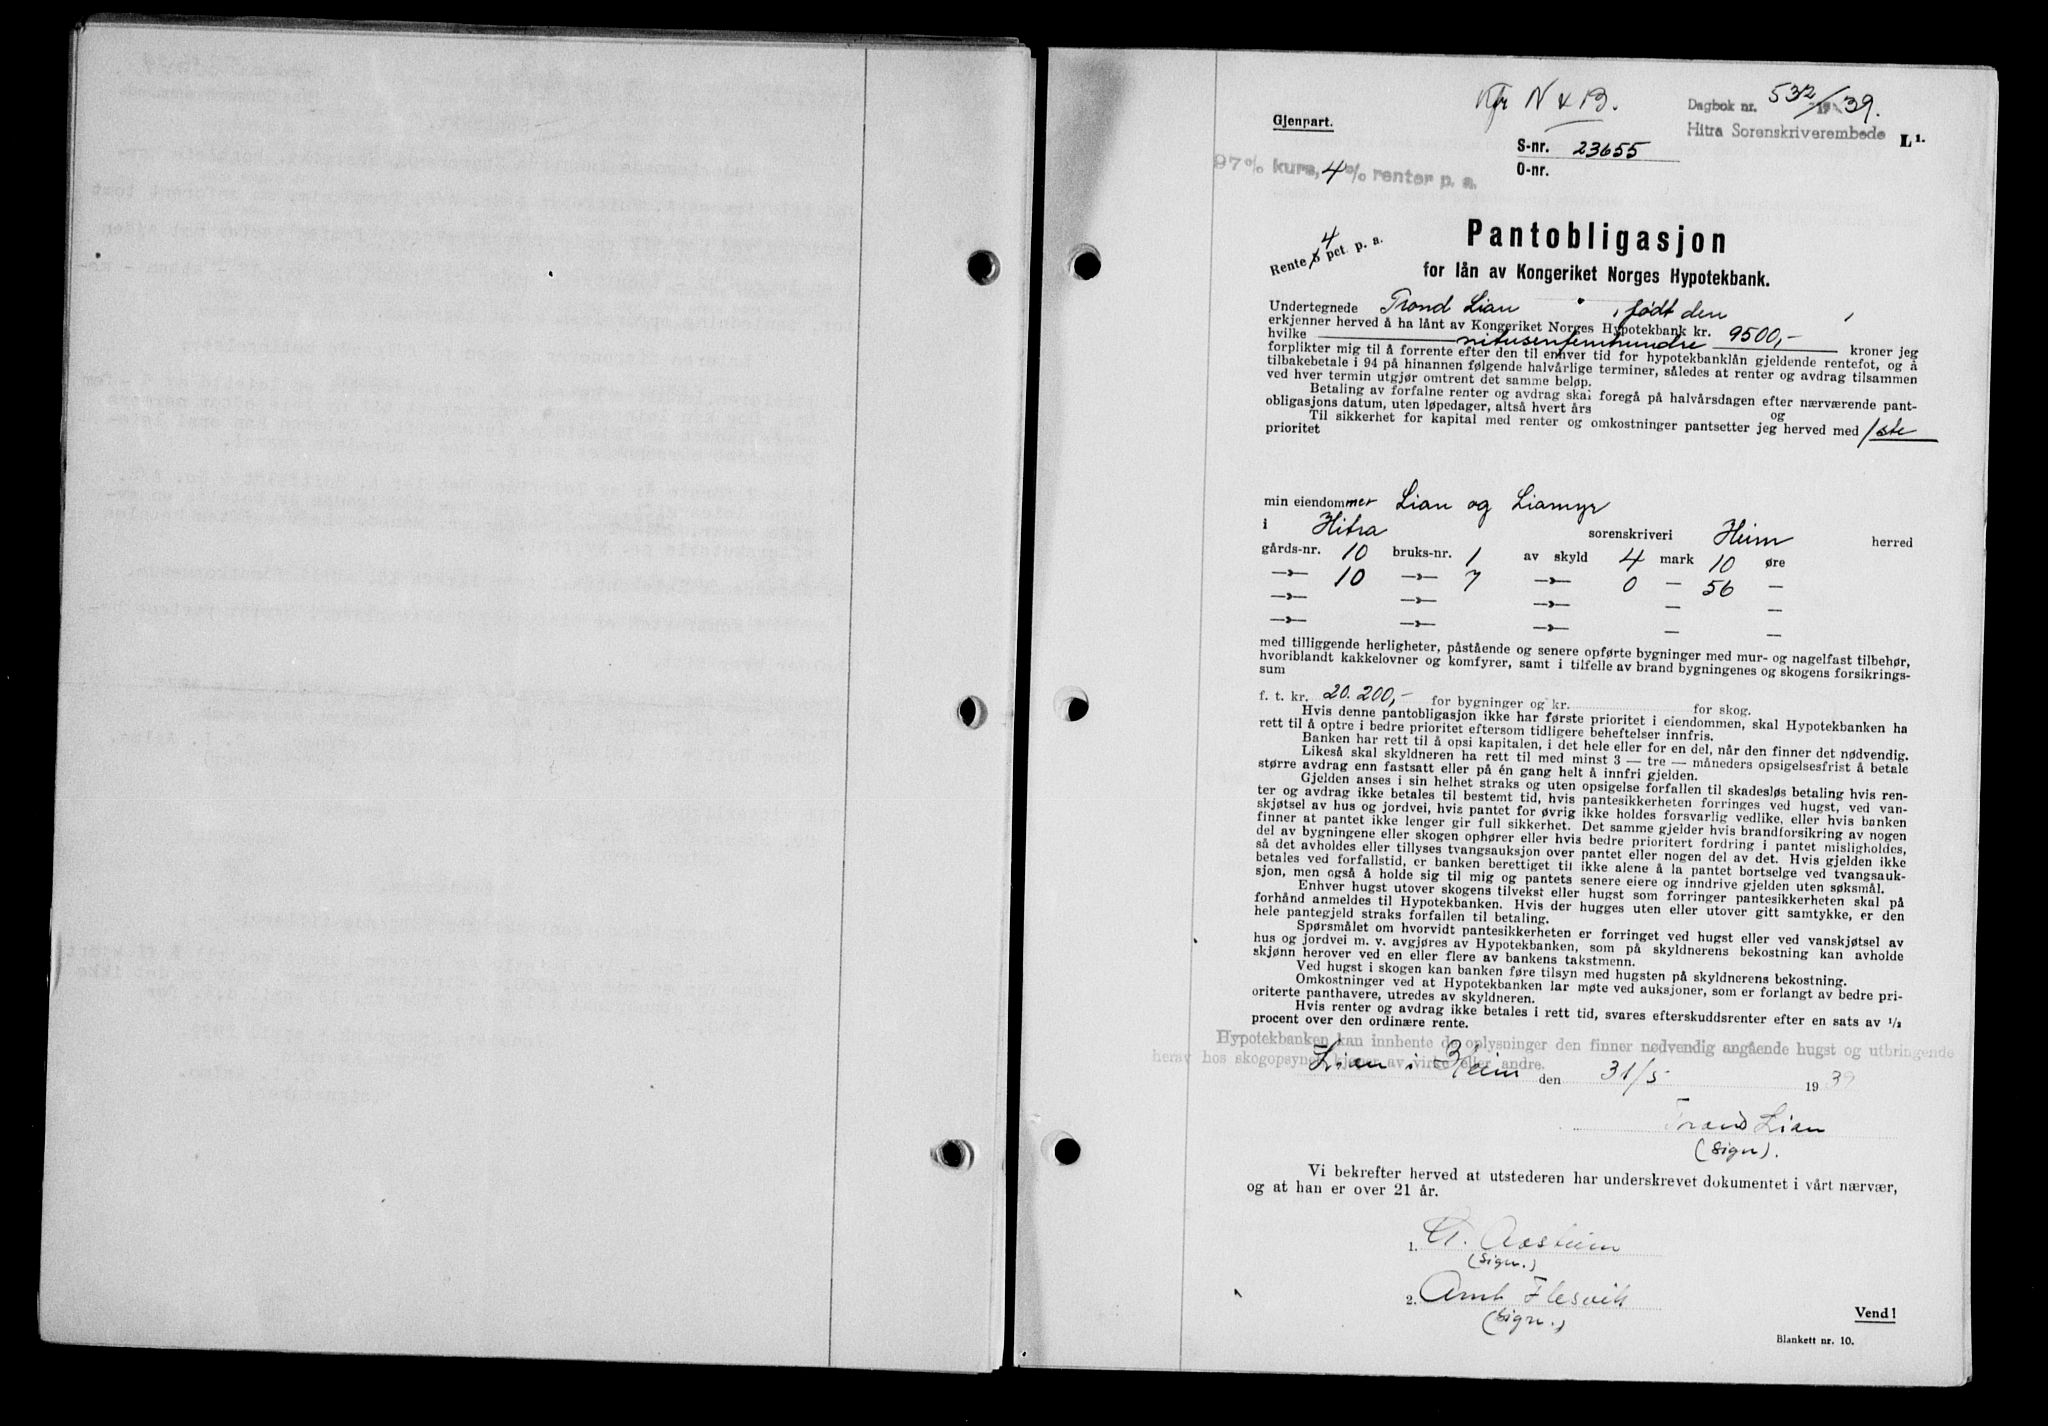 Kfr N 4 B.
Dagbok nr. 532/1939.
Hitra Sorenskriverembede
L 1.
Gjenpart.
S-nr. 23655
O-nr.
97% kurs, 4 % renter p. a.
Rente 5 4 pct. p. a.
Pantobligasjon
for lån av Kongeriket Norges Hypotekbank.
Undertegnede Trond Lian, født den ,
erkjenner herved å ha lånt av Kongeriket Norges Hypotekbank kr. 9500,-
hvilke nitusenfemhundre kroner jeg
forplikter mig til å forrente efter den til enhver tid for hypotekbanklån gjeldende rentefot, og å
tilbakebetale i 94 på hinannen følgende halvårlige terminer, således at renter og avdrag tilsammen
ved hver termin utgjør omtrent det samme beløp.
Betaling av forfalne renter og avdrag skal foregå på halvårsdagen efter nærværende pant-
obligasjons datum, uten løpedager, altså hvert års og
Til sikkerhet for kapital med renter og omkostninger pantsetter jeg herved med 1ste
prioritet
min eiendommer Lian og Liamyr
i Hitra sorenskriveri Heim herred
gårds-nr. 10 bruks-nr. 1 av skyld 4 mark 10 øre
—»— 10 —»— 7 —»— 0 — 56 —
—»— —»— —»— — —
—»— —»— —»— — —
med tilliggende herligheter, påstående og senere opførte bygninger med mur- og nagelfast tilbehør,
hvoriblandt kakkelovner og komfyrer, samt i tilfelle av brand bygningenes og skogens forsikrings-
sum
f. t. kr. 20.200,- for bygninger og kr. for skog.
Hvis denne pantobligasjon ikke har første prioritet i eiendommen, skal Hypotekbanken ha
rett til å optre i bedre prioritet eftersom tidligere beheftelser innfris.
Banken har rett til å opsi kapitalen, i det hele eller for en del, når den finner det nødvendig.
Likeså skal skyldneren ha rett til med minst 3 — tre — måneders opsigelsesfrist å betale
større avdrag enn fastsatt eller på én gang helt å innfri gjelden.
Gjelden anses i sin helhet straks og uten opsigelse forfallen til skadesløs betaling hvis ren-
ter og avdrag ikke betales til bestemt tid, hvis pantesikkerheten forringes ved hugst, ved van-
skjøtsel av hus og jordvei, hvis pantet for øvrig ikke holdes forsvarlig vedlike, eller hvis banken
finner at pantet ikke lenger gir full sikkerhet. Det samme gjelder hvis brandforsikring av nogen
del av bygningene eller skogen ophører eller hvis bedre prioritert fordring i pantet misligholdes,
så det avholdes eller tillyses tvangsauksjon over pantet eller nogen del av det. Hvis gjelden ikke
betales ved forfallstid, er banken berettiget til ikke alene å la pantet bortselge ved tvangsauk-
sjon, men også å holde sig til mig og pantets senere eiere og inndrive gjelden uten søksmål.
Enhver hugst utover skogens tilvekst eller hugst som forringer pantesikkerheten skal på
forhånd anmeldes til Hypotekbanken. Hvis der hugges uten eller utover gitt samtykke, er den
hele pantegjeld straks forfallen til betaling.
Spørsmålet om hvorvidt pantesikkerheten er forringet ved hugst eller ved vanskjøtsel av
hus og jordvei m. v. avgjøres av Hypotekbanken, som på skyldnerens bekostning kan avholde
skjønn herover ved en eller flere av bankens takstmenn.
Ved hugst i skogen kan banken føre tilsyn med hugsten på skyldnerens bekostning.
Omkostninger ved at Hypotekbanken lar møte ved auksjoner, som er forlangt av bedre pri-
oriterte panthavere, utredes av skyldneren.
Hvis renter og avdrag ikke betales i rett tid, svares efterskuddsrenter efter en sats av 1/2
procent over den ordinære rente.
Hypotekbanken kan innhente de oplysninger den finner nødvendig angående hugst og utbringende
herav hos skogopsynet, kjøper av virke eller andre.
Lian i Heim den 31/5 1939
Trond Lian
(sign).
Vi bekrefter herved at utstederen har underskrevet dokumentet i vårt nærvær,
og at han er over 21 år.
1. Aasheim
(sign.)
2. Arnt Flesvik
(sign.)
Vend!
Blankett nr. 10.